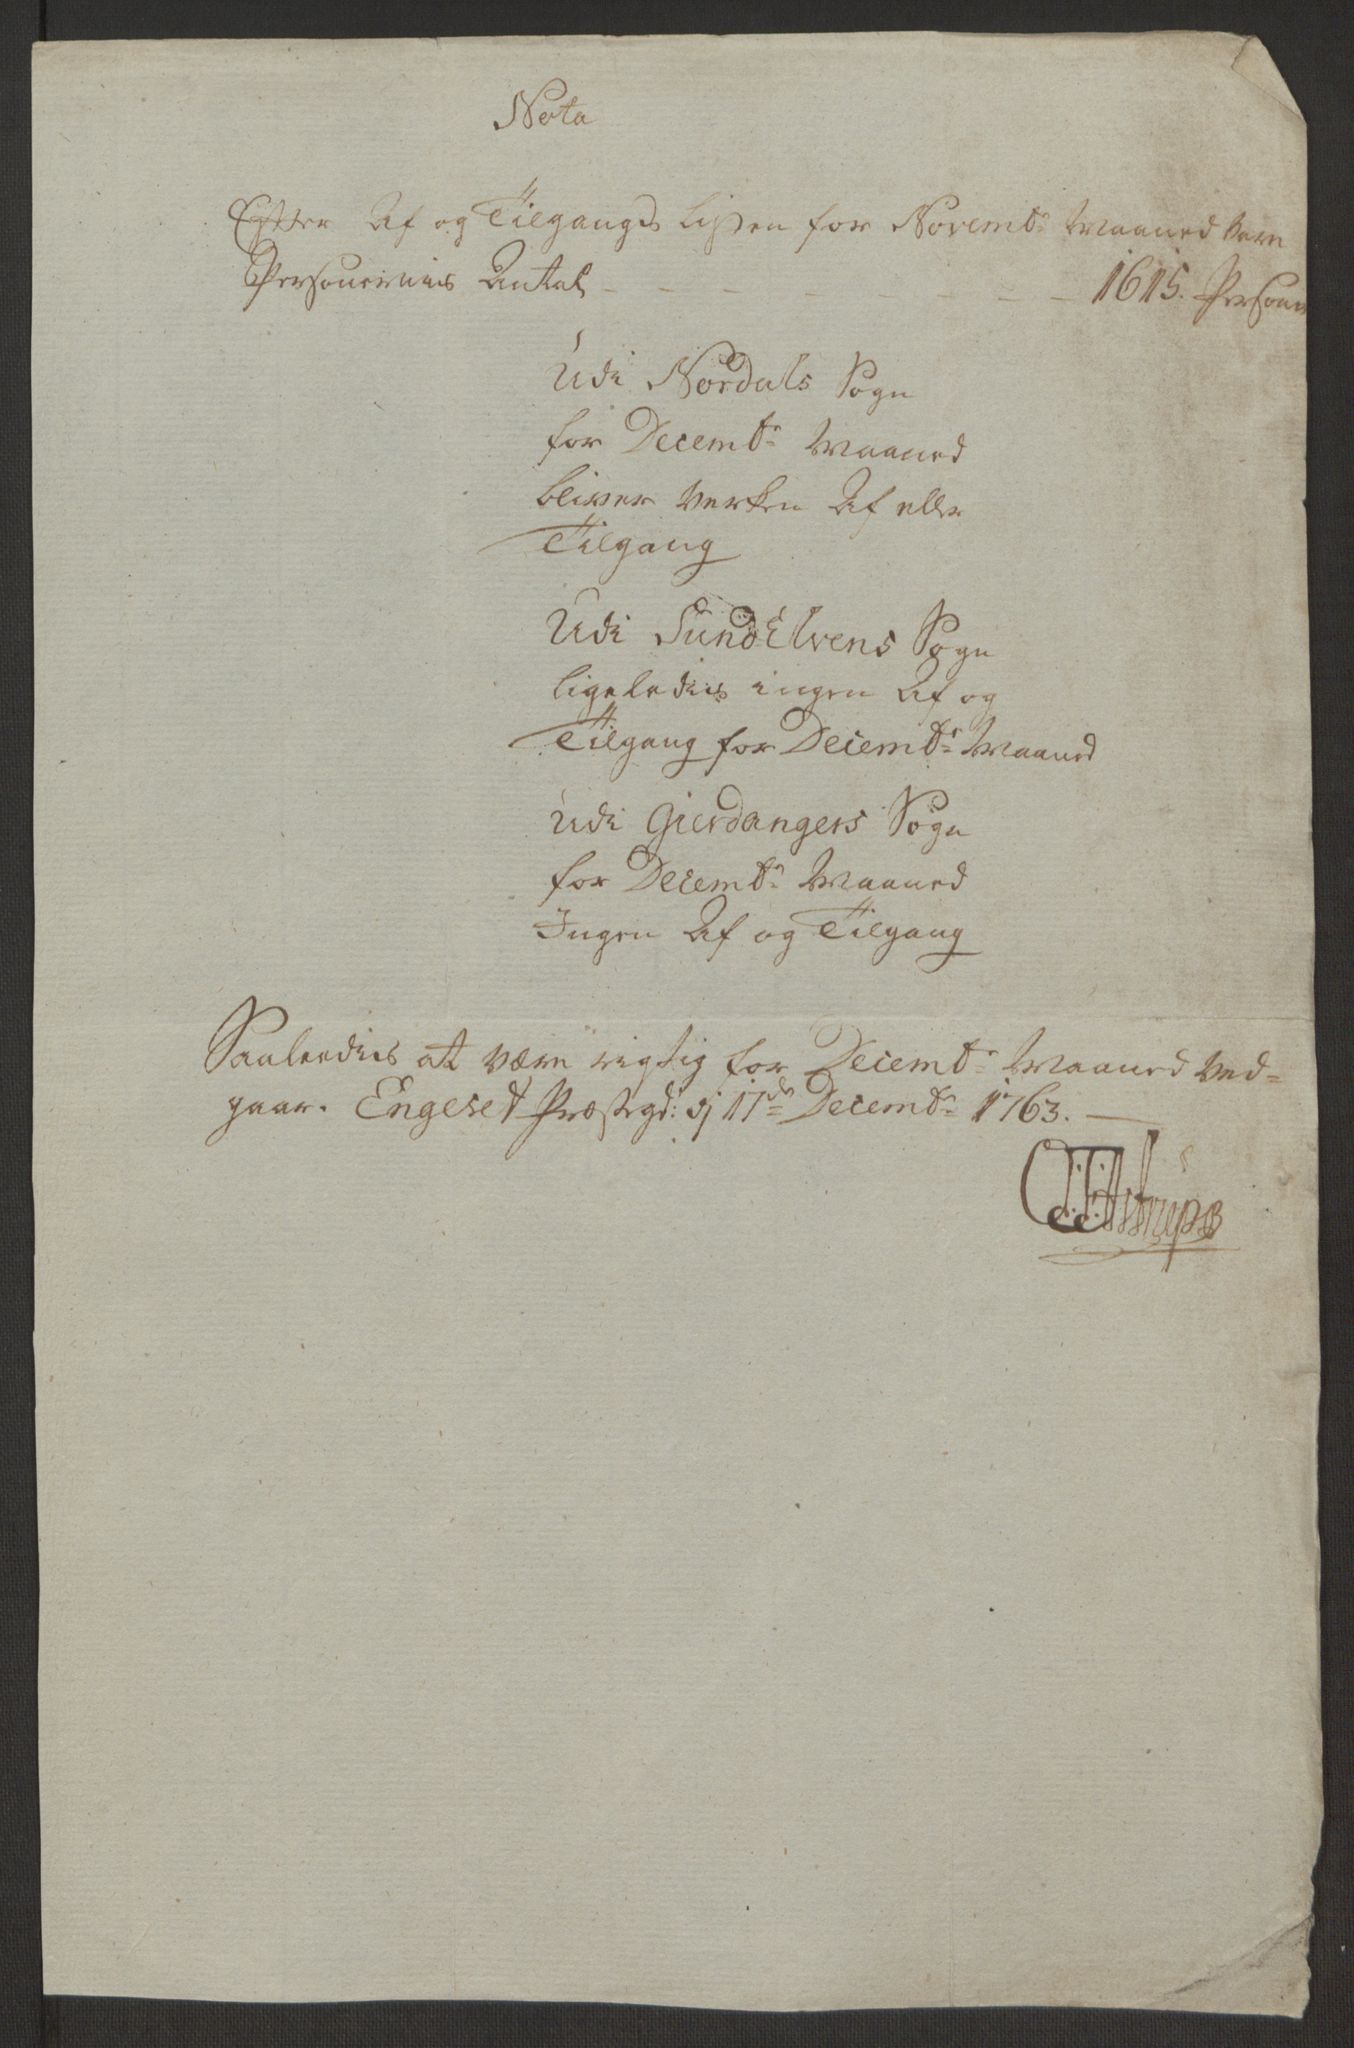 Nota
Efter Af og Tilgangs Listen for Novembr: Maaned vare
Personernes Antal - - - - - - - - 1615. Persone
Udi Nordals Sogn
for Decembr: Maaned
bliver verken Af eller
Tilgang
Udi SundElvens Sogn
ligeledes ingen Af og
Tilgang for Decembr: Maaned
Udi Gierdangers Sogn
for Decembr: Maaned
Ingen Af og Tilgang
Saaledes at være rigtig for Decembr: Maaned ved-
gaar. Engeset Præstegd: dj 17de Decembr: 1763.
Astrup